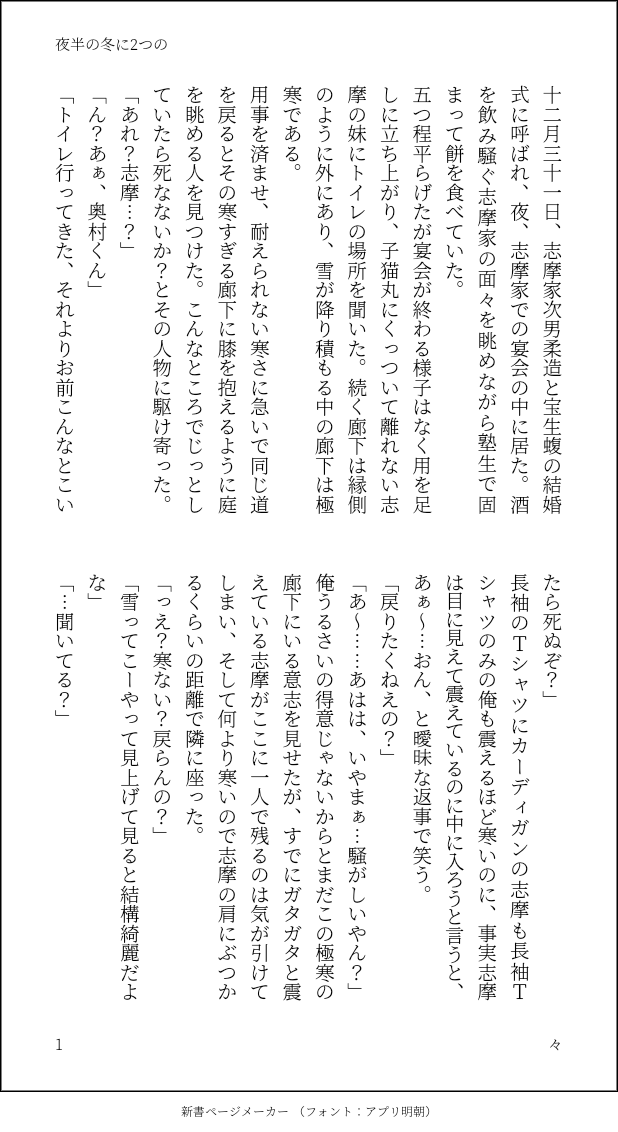 夜半の冬に2つの
十二月三十一日、志摩家次男柔造と宝生蝮の結婚
式に呼ばれ、夜、志摩家での宴会の中に居た。酒
を飲み騒ぐ志摩家の面々を眺めながら塾生で固
まって餅を食べていた。
五つ程平らげたが宴会が終わる様子はなく用を足
しに立ち上がり、子猫丸にくっついて離れない志
摩の妹にトイレの場所を聞いた。続く廊下は縁側
のように外にあり、雪が降り積もる中の廊下は極
寒である。
用事を済ませ、耐えられない寒さに急いで同じ道
を戻るとその寒すぎる廊下に膝を抱えるように庭
を眺める人を見つけた。こんなところでじっとし
ていたら死なないか？とその人物に駆け寄った。
「あれ？志摩…？」
「ん？あぁ、奥村くん」
「トイレ行ってきた、それよりお前こんなとこい
たら死ぬぞ？」
長袖のTシャツにカーディガンの志摩も長袖T
シャツのみの俺も震えるほど寒いのに、事実志摩
は目に見えて震えているのに中に入ろうと言うと、
あぁ〜…おん、と曖昧な返事で笑う。
「戻りたくねえの？」
「あ〜……あはは、いやまぁ…騒がしいやん？」
俺うるさいの得意じゃないからとまだこの極寒の
廊下にいる意志を見せたが、すでにガタガタと震
えている志摩がここに一人で残るのは気が引けて
しまい、そして何より寒いので志摩の肩にぶつか
るくらいの距離で隣に座った。
「っえ？寒ない？戻らんの？」
「雪ってこーやって見上げて見ると結構綺麗だよ
な」
「…聞いてる？」
1
々
新書ページメーカー （フォント：アプリ明朝）